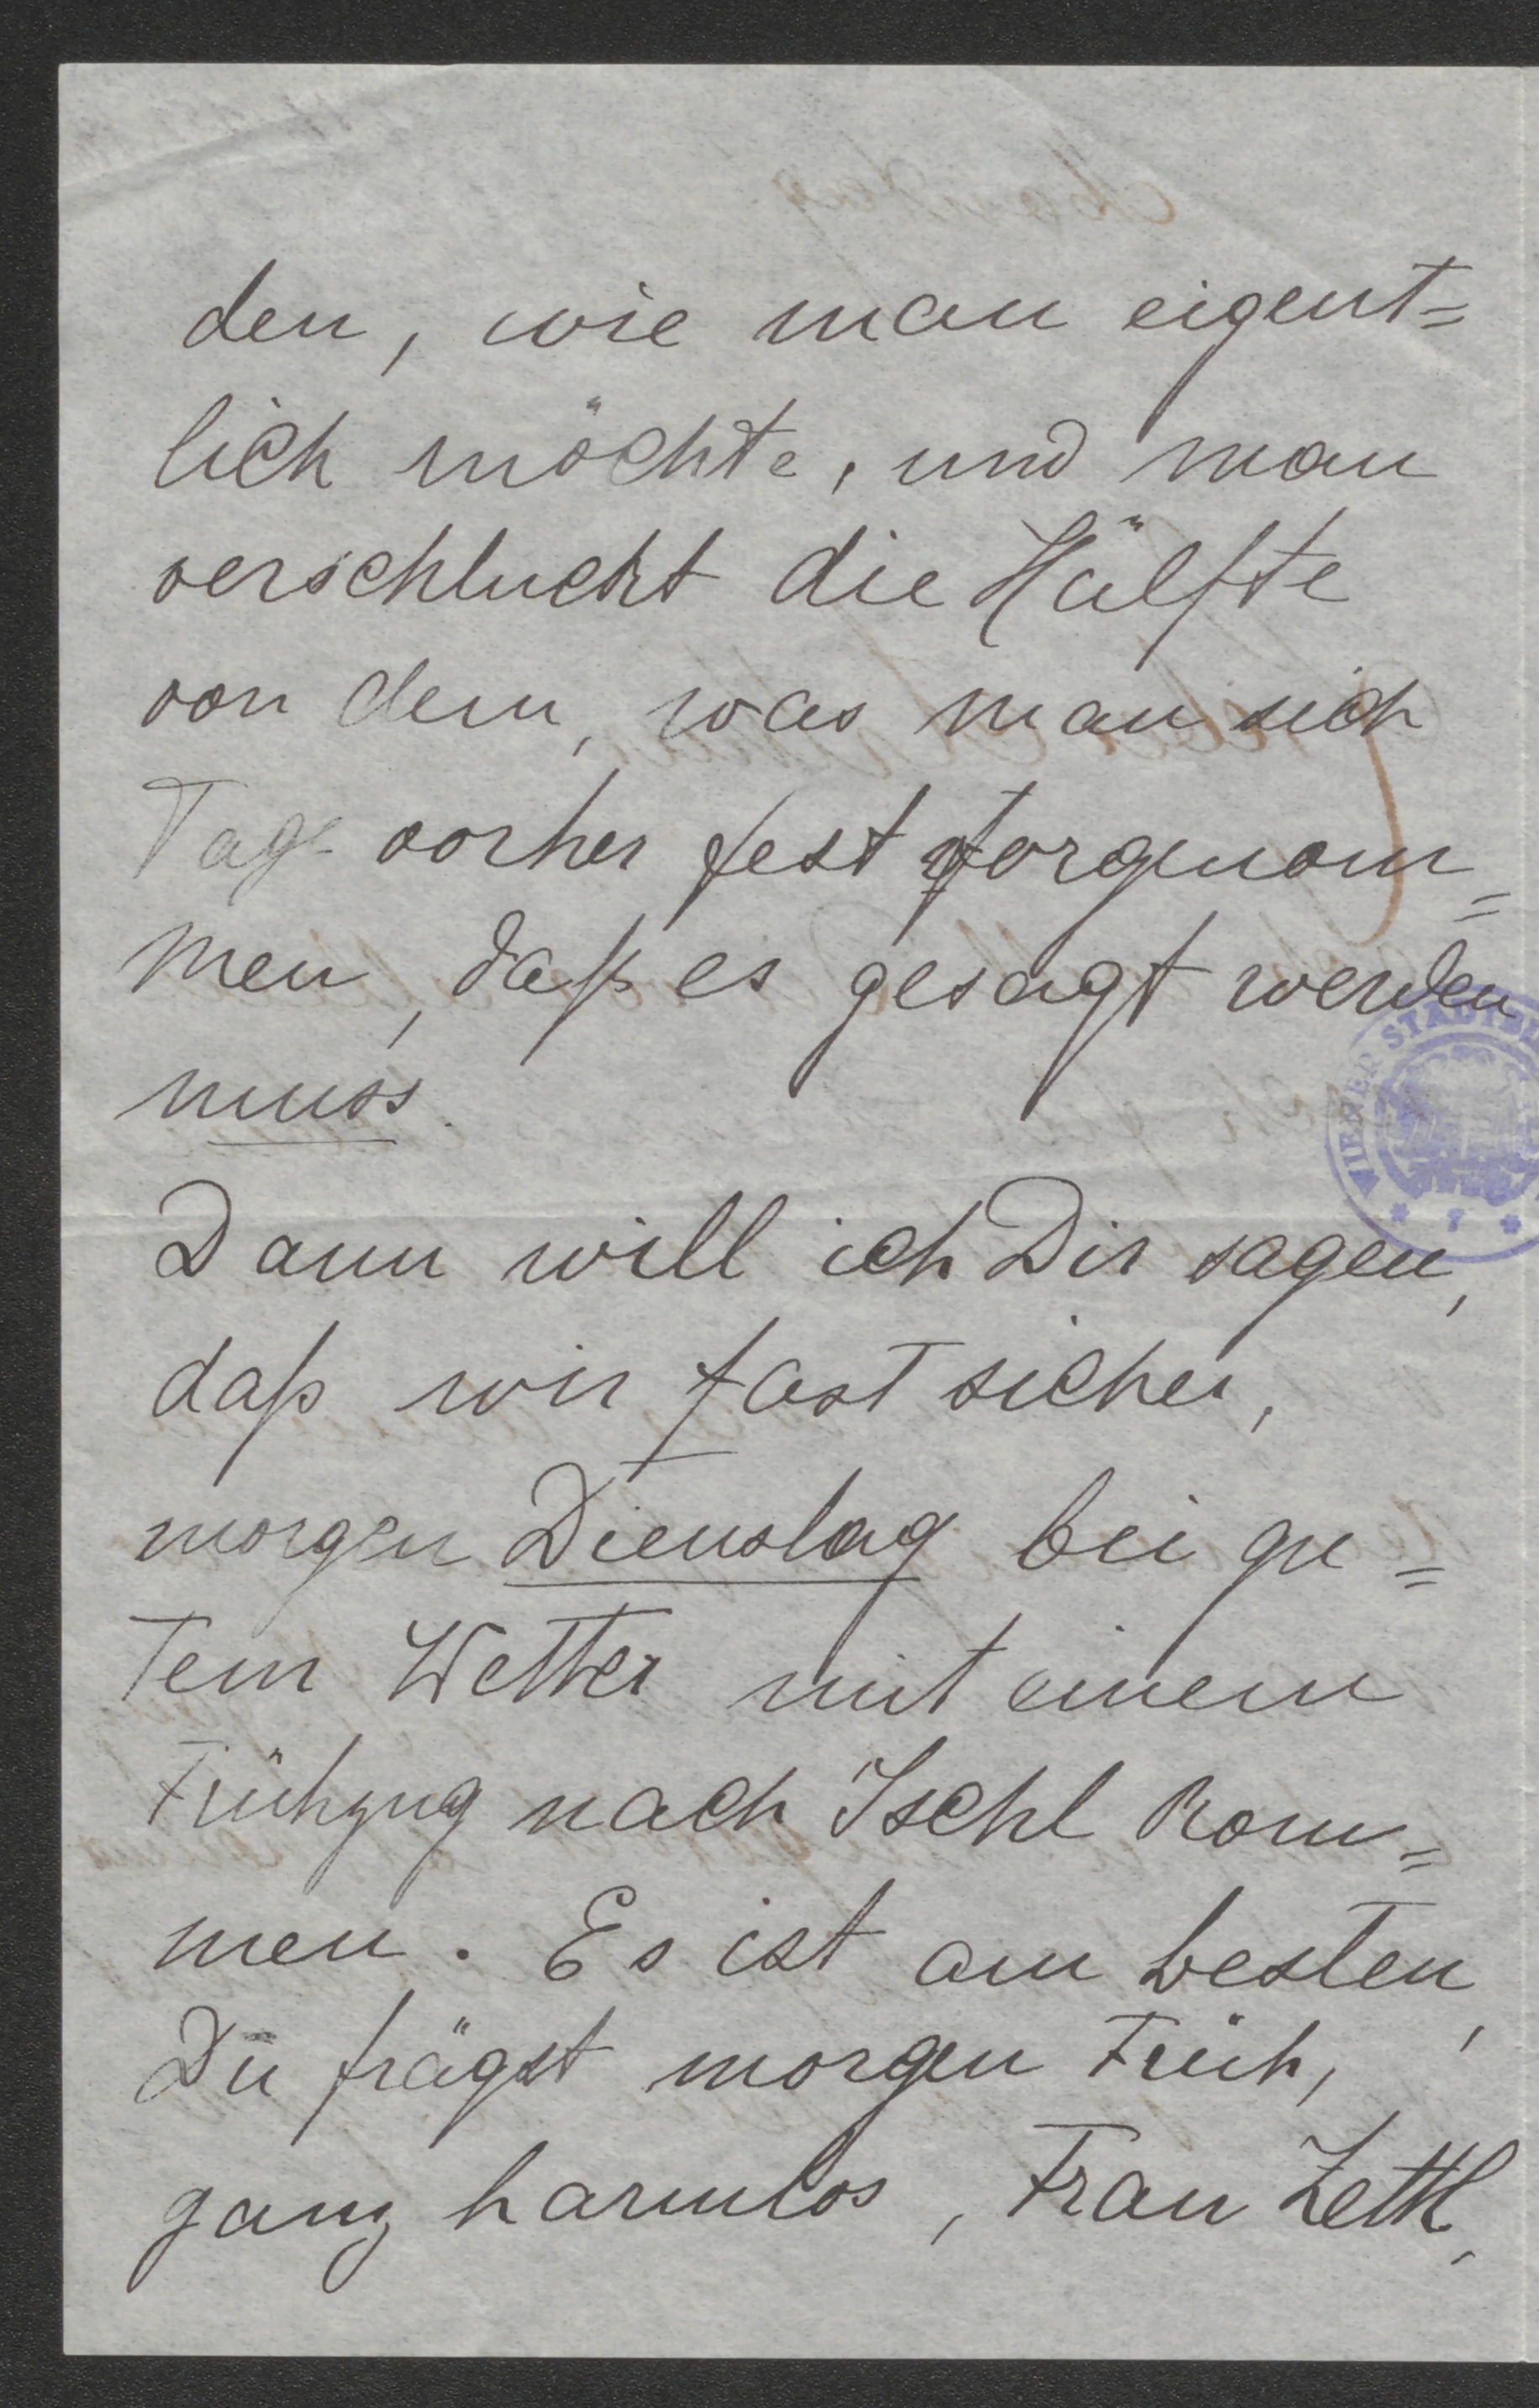 den, wie man eigent=
lich möchte, und man
verschluckt die Hälfte
von dem, was man sich
Tags vorher fest vorgenom=
men, daß es gesagt werden
muss.
Dann will ich Dir sagen,
daß wir fast sicher,
morgen Dienstag bei gu=
tem Wetter mit einem
Frühzug nach Ischl kom=
men. Es ist am besten,
Du frägst morgen Früh,
ganz harmlos, Frau Zettl,
WIENER STADTBI